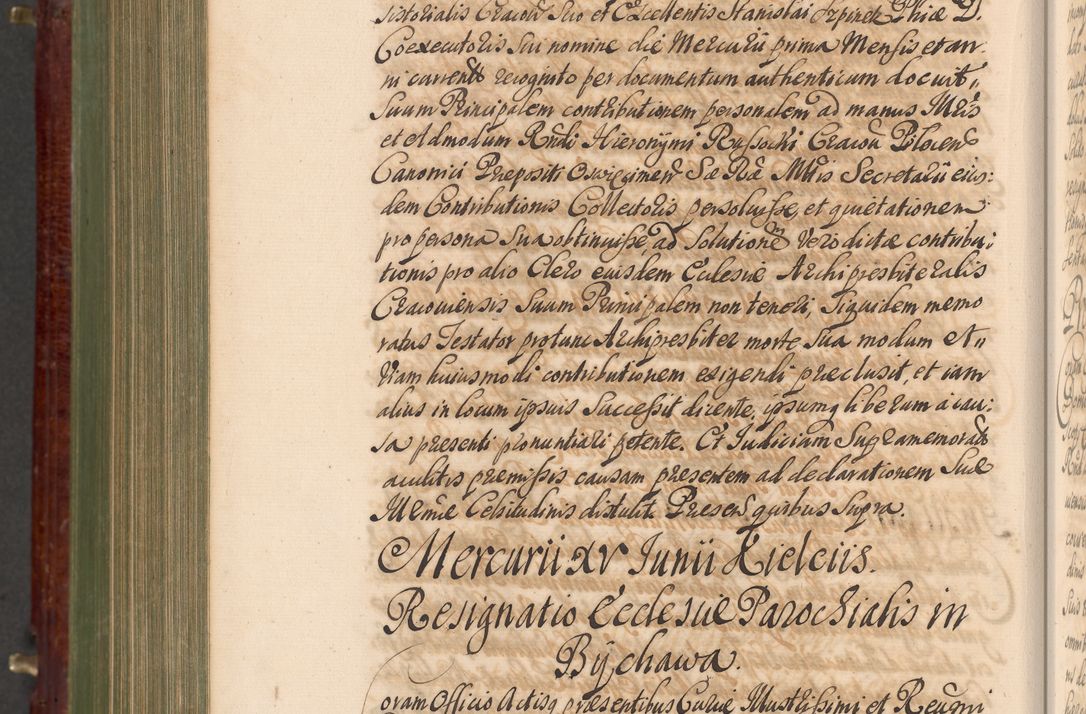 sistorialis Cracoū Suo et Excellentis Stanislai Erpinek Phiæ D.
Coexecutoris Sui nomine die Mercurii prima Mensis et an¬
ni currentis recognito per documentum authenticum docuit,
Suum Principalem contributionem personalem ad manus Mūs
et Admodum Rndi Hieronymi Russocki Cracoū Plocens̄
Canonici Prepositi Oswiecimen̄ Sæ Ræ Mtis Secretarii eius:
dem Contributionis Collectoris persoluisse, et quietationem
pro persona Sua obtinuisse, ad Solutionē Vero dictæ contribu:
tionis pro alio Clero eiusdem Ecclesiæ Archipresbiteralis
Cracouiensis Suum Principalem non teneri, Siquidem memo
ratus Testator protunc Archipresbiter morte Sua modum et
Viam huiusmodi contributionem exigendi præclusit, et iam
alius in locum ipsius Successit dicente, ipsumq liberum a cau:
sa presenti pronuntiari petente. Et Iudicium Supramemorat
auditis premissis causam presentem ad declarationem Suæ
Illmæ Celsitudinis distulit. Presen̄ quibus Supra.
Mercurii xv Iunii Kielciis.
Resignatio Ecclesiæ Parochialis in
Bychawa.
oram Officio Actisq præsentibus Curiæ Illustrissimi et Reugmi